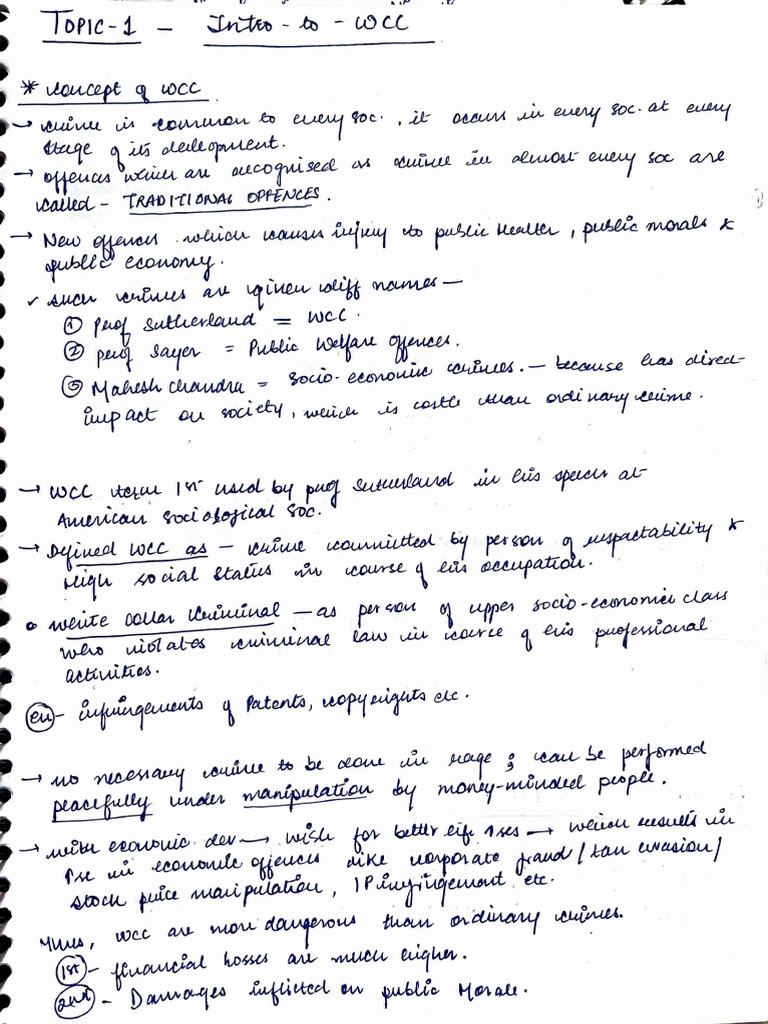 TOPIC-1 - Intro-to-WCC
* concept of WCC
→ crime is common to every soc., it occurs in every soc. at every
stage of its development.
→ offences which are recognised as crime in almost every soc are
called - TRADITIONAL OFFENCES.
→ New offences which causes injury to public health, public morals &
public economy.
✓ such crimes are given diff names—
① Prof Sutherland = WCC.
② prof Sayer = Public Welfare offences.
③ Mahesh Chandra = socio-economic crimes. — because has direct
impact on society, which is costle than ordinary crime.
→ WCC term 1st used by prof Sutherland in his speech at
American Sociological Soc.
→ Defined WCC as — crime committed by person of respectability &
High social status in course of his occupation.
• White Collar Criminal — as person of upper socio-economic class
who violates criminal law in course of his professional
activities.
ex - infringements of Patents, copyrights etc.
→ no necessary crime to be done in rage; can be performed
peacefully under manipulation by money-minded people.
→ with economic dev → wish for better life ↑ses → which results in
↑se in economic offences like corporate fraud / tax evasion /
stock price manipulation, IP infringement etc.
Thus, WCC are more dangerous than ordinary crimes.
1st - financial losses are much higher.
2nd - Damages inflicted on public Morale.